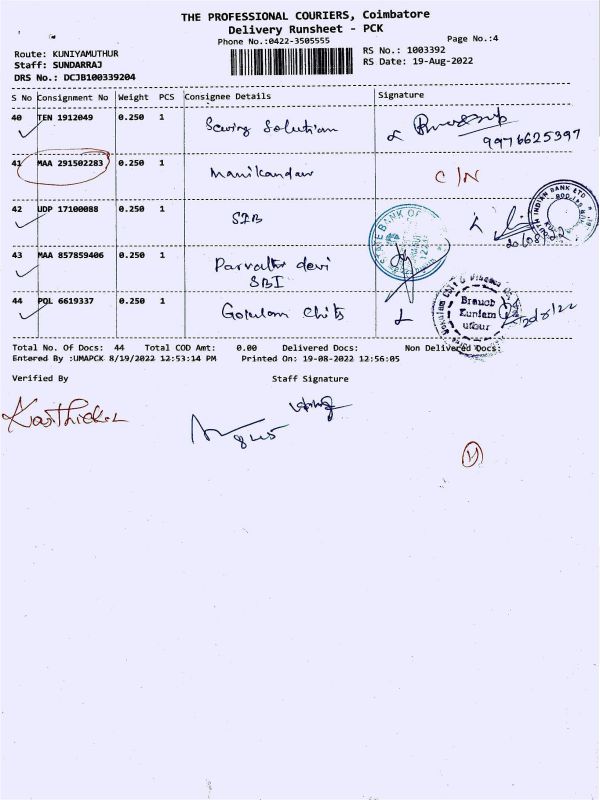 THE PROFESSIONAL COURIERS, Coimbatore
Delivery Runsheet - PCK
Phone No.:0422-3505555
Page No.:4
Route: KUNIYAMUTHUR
RS No.: 1003392
Staff: SUNDARRAJ
RS Date: 19-Aug-2022
DRS No.: DCJB100339204
S No Consignment No Weight PCS Consignee Details Signature
40 TEN 1912049 0.250 1 Sewing Solution
9976625397
41 MAA 291502283 0.250 1 Manikandan C/N
42 UDP 17100088 0.250 1 SIB
STATE BANK OF
SOUTH INDIAN BANK LTD
43 MAA 857859406 0.250 1 Parvathi devi
SBI
44 POL 6619337 0.250 1 Gokulam Chits
Branch
Kuniam
uthur
Total No. Of Docs: 44 Total COD Amt: 0.00 Delivered Docs: Non Delivered Docs:
Entered By :UMAPCK 8/19/2022 12:53:14 PM Printed On: 19-08-2022 12:56:05
Verified By Staff Signature
Karthick